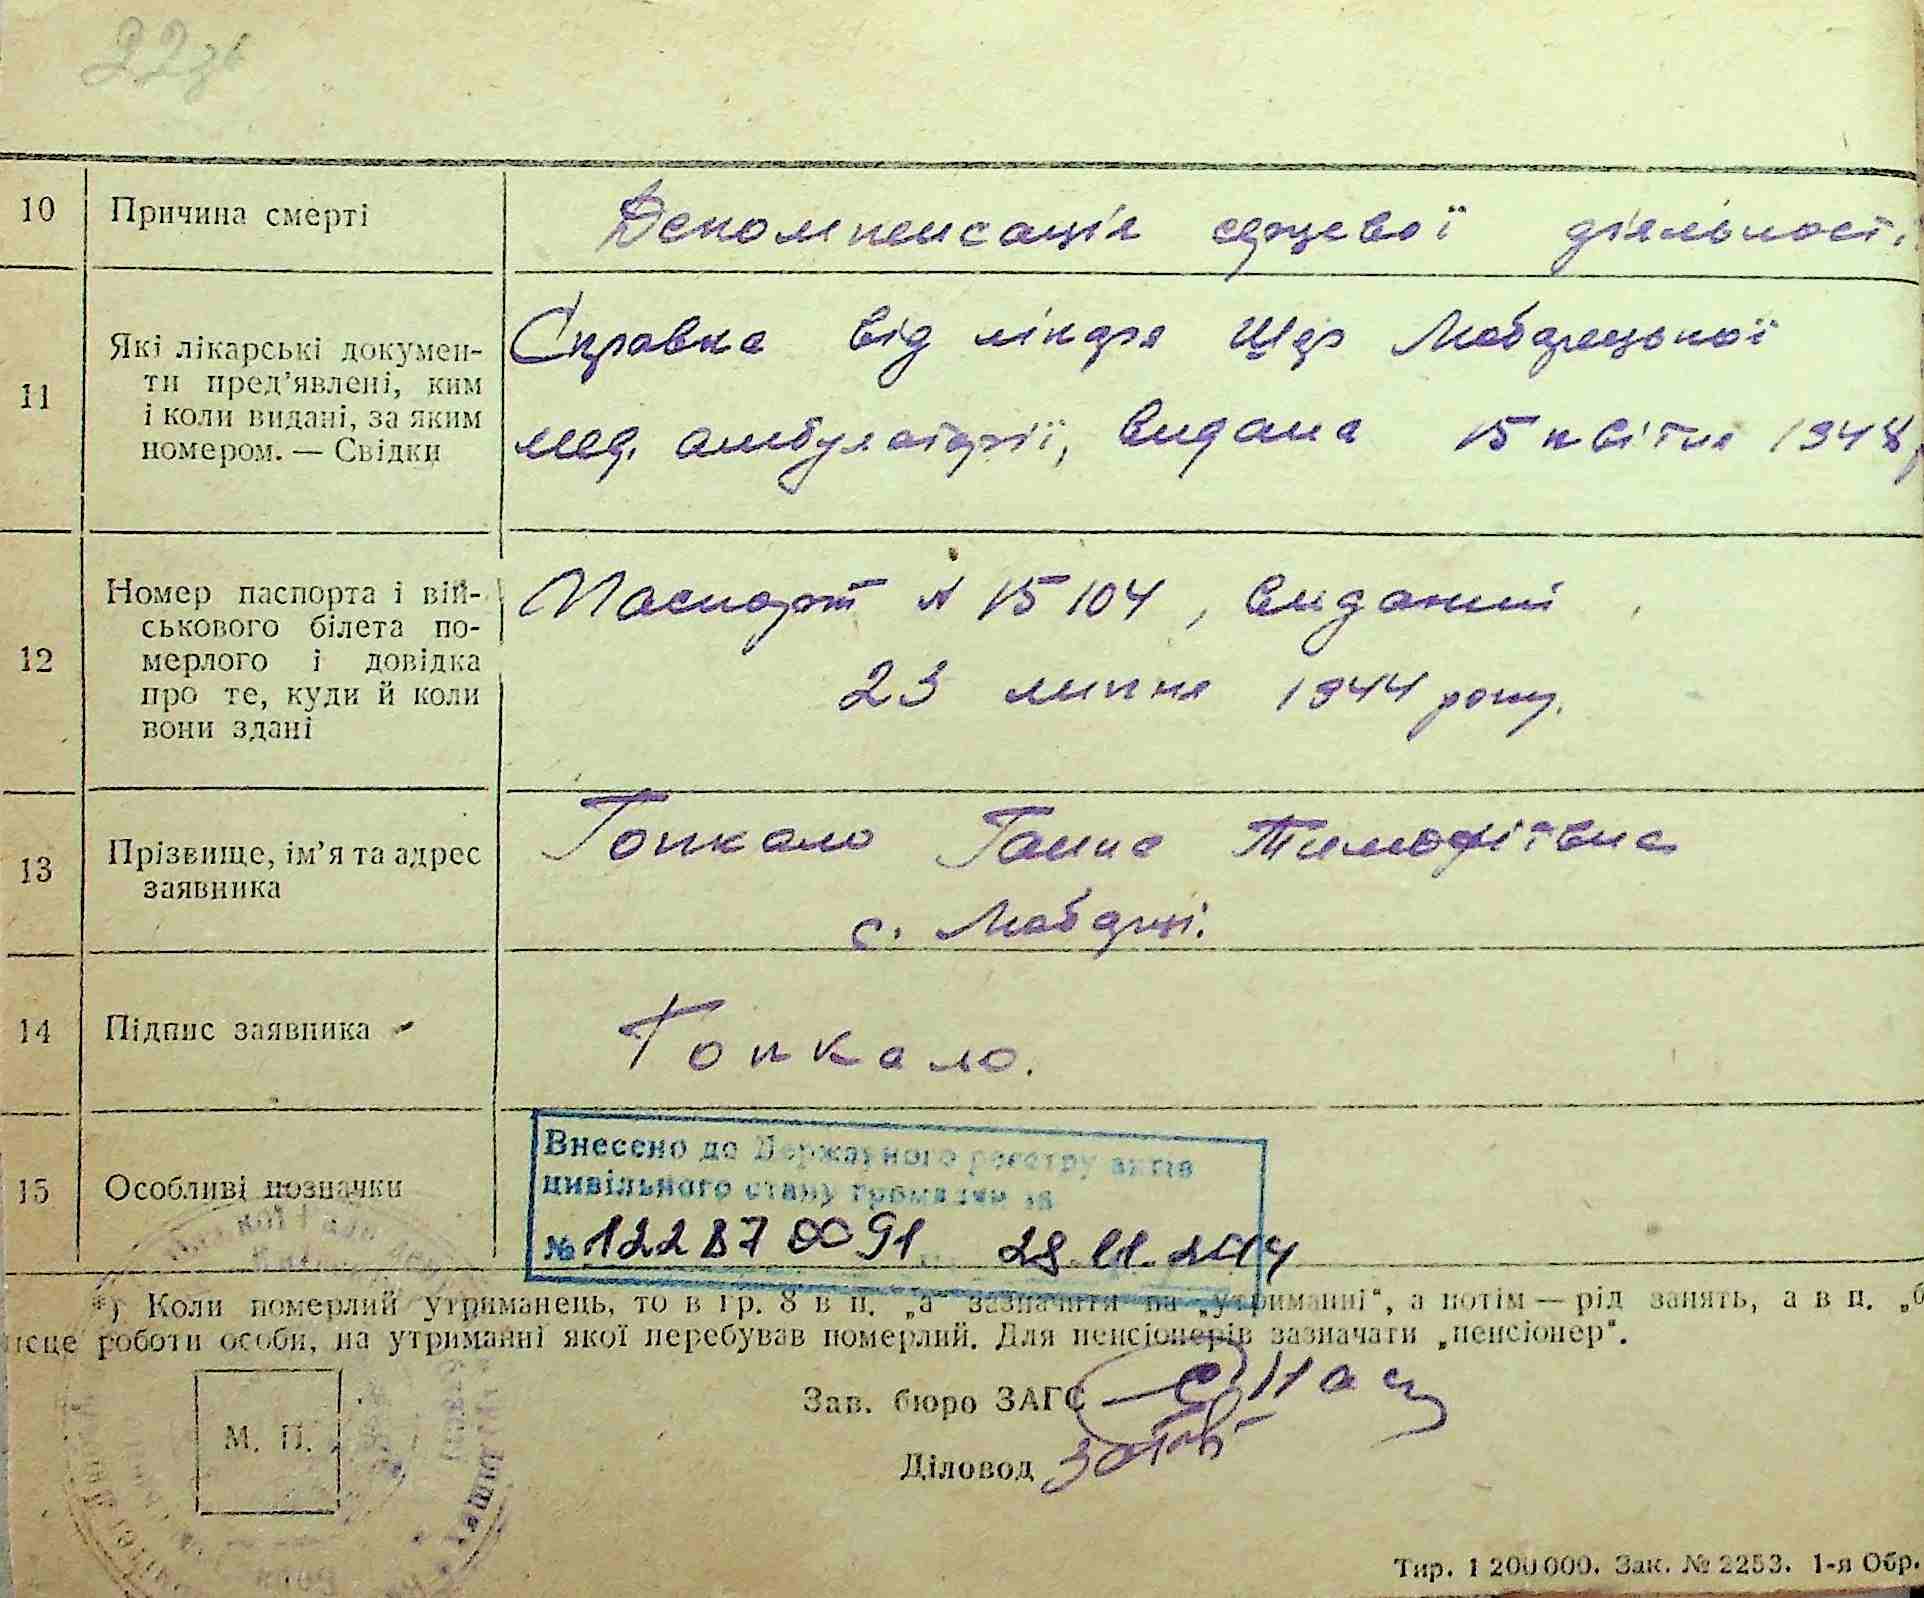 22зв
10 Причина смерті Декомпенсація серцевої діяльності.
11 Які лікарські докумен-
ти пред’явлені, ким
і коли видані, за яким
номером. — Свідки
Справка від лікаря Любарецької
мед. амбулаторії, видана 15 квітня 1948
12 Номер паспорта і вій-
ськового білета по-
мерлого і довідка
про те, куди й коли
вони здані
Паспорт № 15104, виданий
23 липня 1944 року.
13 Прізвище, ім’я та адрес
заявника
Гопкало Ганна Тимофіївна
с. Любарці.
14 Підпис заявника Гопкало.
15 Особливі позначки
Внесено до Державного реєстру актів
цивільного стану громадян за
№ 12287 0091 28.11.2014
*) Коли померлий утриманець, то в гр. 8 в п. „а“ зазначити на „утриманні“, а потім — рід занять, а в п. „б
ісце роботи особи, на утриманні якої перебував померлий. Для пенсіонерів зазначати „пенсіонер“.
Зав. бюро ЗАГС
Діловод
М. П.
Тир. 1 200 000. Зак. № 2253. 1-я Обр.